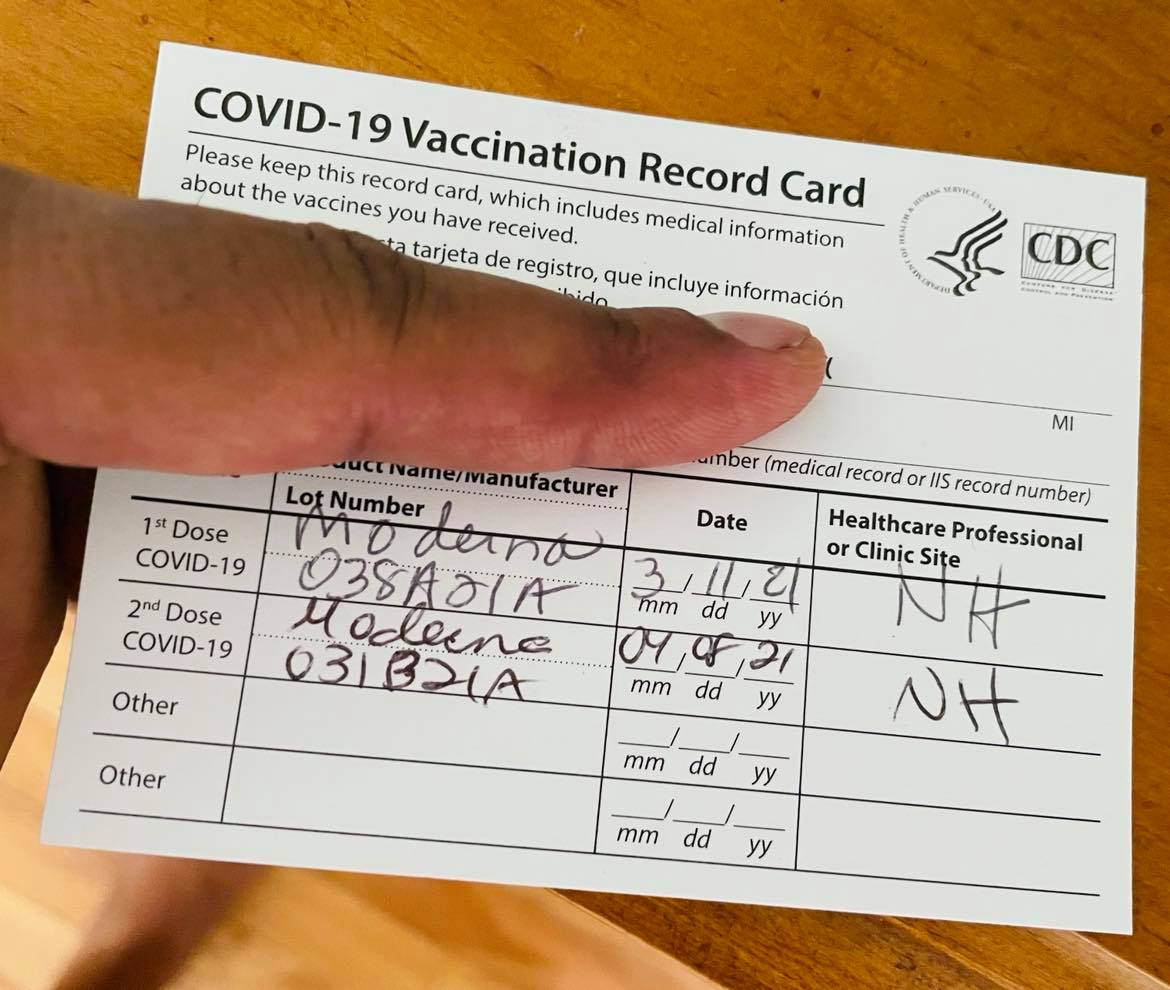 COVID-19 Vaccination Record Card
Please keep this record card, which includes medical information
about the vaccines you have received.
tarjeta de registro, que incluye información
DEPARTMENT OF HEALTH & HUMAN SERVICES · USA
CDC
CENTERS FOR DISEASE
CONTROL AND PREVENTION
MI
(medical record or IIS record number)
Name/Manufacturer
Lot Number
Date
Healthcare Professional
or Clinic Site
1st Dose
COVID-19
Moderna
038A21A
3 / 11 / 21
mm dd yy
NH
2nd Dose
COVID-19
Moderna
031B21A
04 / 08 / 21
mm dd yy
NH
Other
mm dd yy
Other
mm dd yy